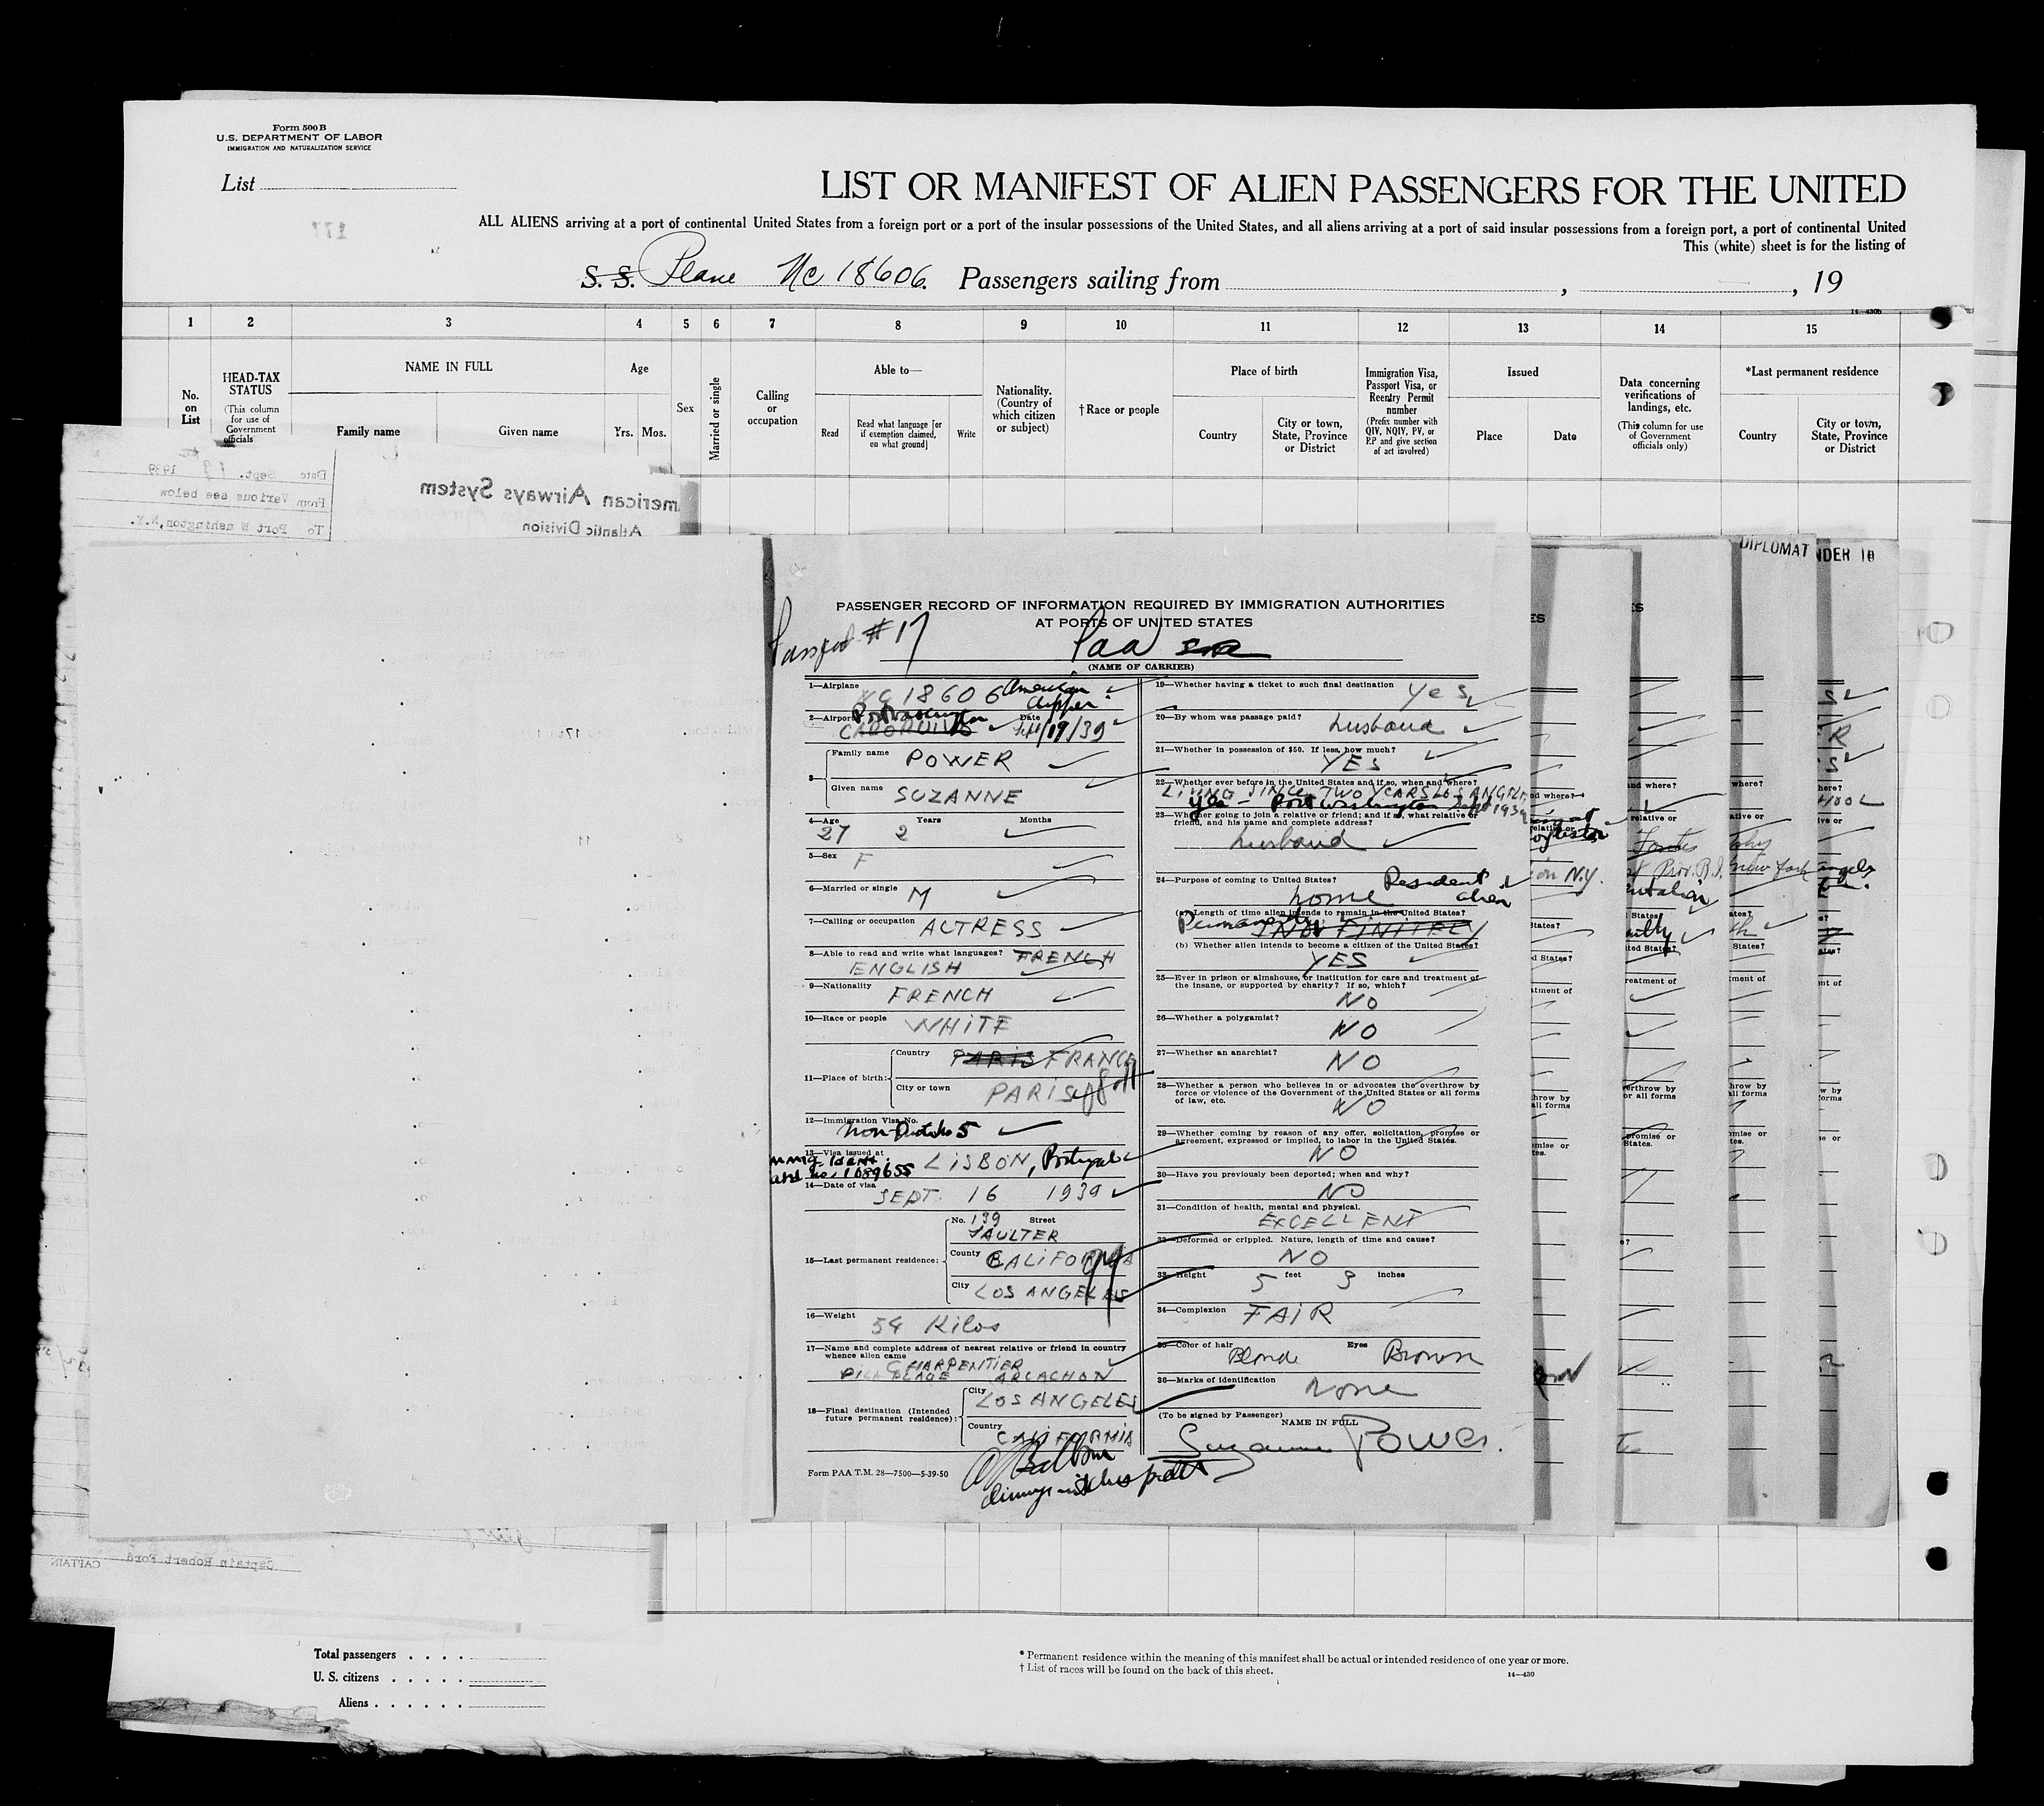 Form 500 B
U.S. DEPARTMENT OF LABOR
IMMIGRATION AND NATURALIZATION SERVICE
List
LIST OR MANIFEST OF ALIEN PASSENGERS FOR THE UNITED
ALL ALIENS arriving at a port of continental United States from a foreign port or a port of the insular possessions of the United States, and all aliens arriving at a port of said insular possessions from a foreign port, a port of continental United
This (white) sheet is for the listing of
177
S. S. Plane Nc 18606. Passengers sailing from , , 19
14-430b
1 2 3 4 5 6 7 8 9 10 11 12 13 14 15
No. on List
HEAD-TAX STATUS
(This column for use of Government officials
NAME IN FULL
Family name
Given name
Age
Yrs. Mos.
Sex
Married or single
Calling or occupation
Able to—
Read
Read what language [or if exemption claimed, on what ground]
Write
Nationality. (Country of which citizen or subject)
† Race or people
Place of birth
Country
City or town, State, Province or District
Immigration Visa, Passport Visa, or Reentry Permit number
(Prefix number with QIV, NQIV, PV, or P.P and give section of act involved)
Issued
Place
Date
Data concerning verifications of landings, etc.
(This column for use of Government officials only)
*Last permanent residence
Country
City or town, State, Province or District
Date Sept. 19 1939
From Various see below
To Port Washington, N.Y.
merican Airways System
Atlantic Division
DIPLOMAT
NDER 16
PASSENGER RECORD OF INFORMATION REQUIRED BY IMMIGRATION AUTHORITIES
AT PORTS OF UNITED STATES
#17
Paa
(NAME OF CARRIER)
1—Airplane NC 18606 American Clipper
2—Airport Port Washington Date Sept/19/39
3— Family name POWER
Given name SUZANNE
4—Age 27 Years 2 Months
5—Sex F
6—Married or single M
7—Calling or occupation ACTRESS
8—Able to read and write what languages? FRENCH
ENGLISH
9—Nationality FRENCH
10—Race or people WHITE
11—Place of birth: Country PARIS FRANCE
City or town PARIS
12—Immigration Visa No.
Non-Quota No 5
13—Visa issued at LISBON, Portugal
Immig. Ident.
card no. 1089655
14—Date of visa SEPT. 16 1939
15—Last permanent residence: No. 139 Street
SAULTER
County CALIFORNIA
City LOS ANGELES
16—Weight 54 Kilos
17—Name and complete address of nearest relative or friend in country whence alien came
CHARPENTIER
PLAGE ARCACHON
18—Final destination (Intended future permanent residence): City LOS ANGELES
Country CALIFORNIA
Form PAA T.M. 28—7500—5-39-50
19—Whether having a ticket to such final destination Yes
20—By whom was passage paid? husband
21—Whether in possession of $50. If less, how much?
YES
22—Whether ever before in the United States and if so, when and where?
LIVING SINCE TWO YEARS LOS ANGELES
Yes - Port Washington Sept 1939
23—Whether going to join a relative or friend; and if so, what relative or friend, and his name and complete address?
husband
24—Purpose of coming to United States? Resident alien
home
(a) Length of time alien intends to remain in the United States?
Permanently INDEFINITELY
(b) Whether alien intends to become a citizen of the United States?
YES
25—Ever in prison or almshouse, or institution for care and treatment of the insane, or supported by charity? If so, which?
NO
26—Whether a polygamist? NO
27—Whether an anarchist? NO
28—Whether a person who believes in or advocates the overthrow by force or violence of the Government of the United States or all forms of law, etc.
NO
29—Whether coming by reason of any offer, solicitation, promise or agreement, expressed or implied, to labor in the United States.
NO
30—Have you previously been deported; when and why?
NO
31—Condition of health, mental and physical.
EXCELLENT
32—Deformed or crippled. Nature, length of time and cause?
NO
33—Height 5 feet 3 inches
34—Complexion FAIR
35—Color of hair Blonde Eyes Brown
36—Marks of identification none
(To be signed by Passenger) NAME IN FULL
Suzanne Power.
Captain Robert Ford CAPTAIN
Total passengers . . . .
U. S. citizens . . . . .
Aliens . . . . . .
* Permanent residence within the meaning of this manifest shall be actual or intended residence of one year or more.
† List of races will be found on the back of this sheet.
14—430